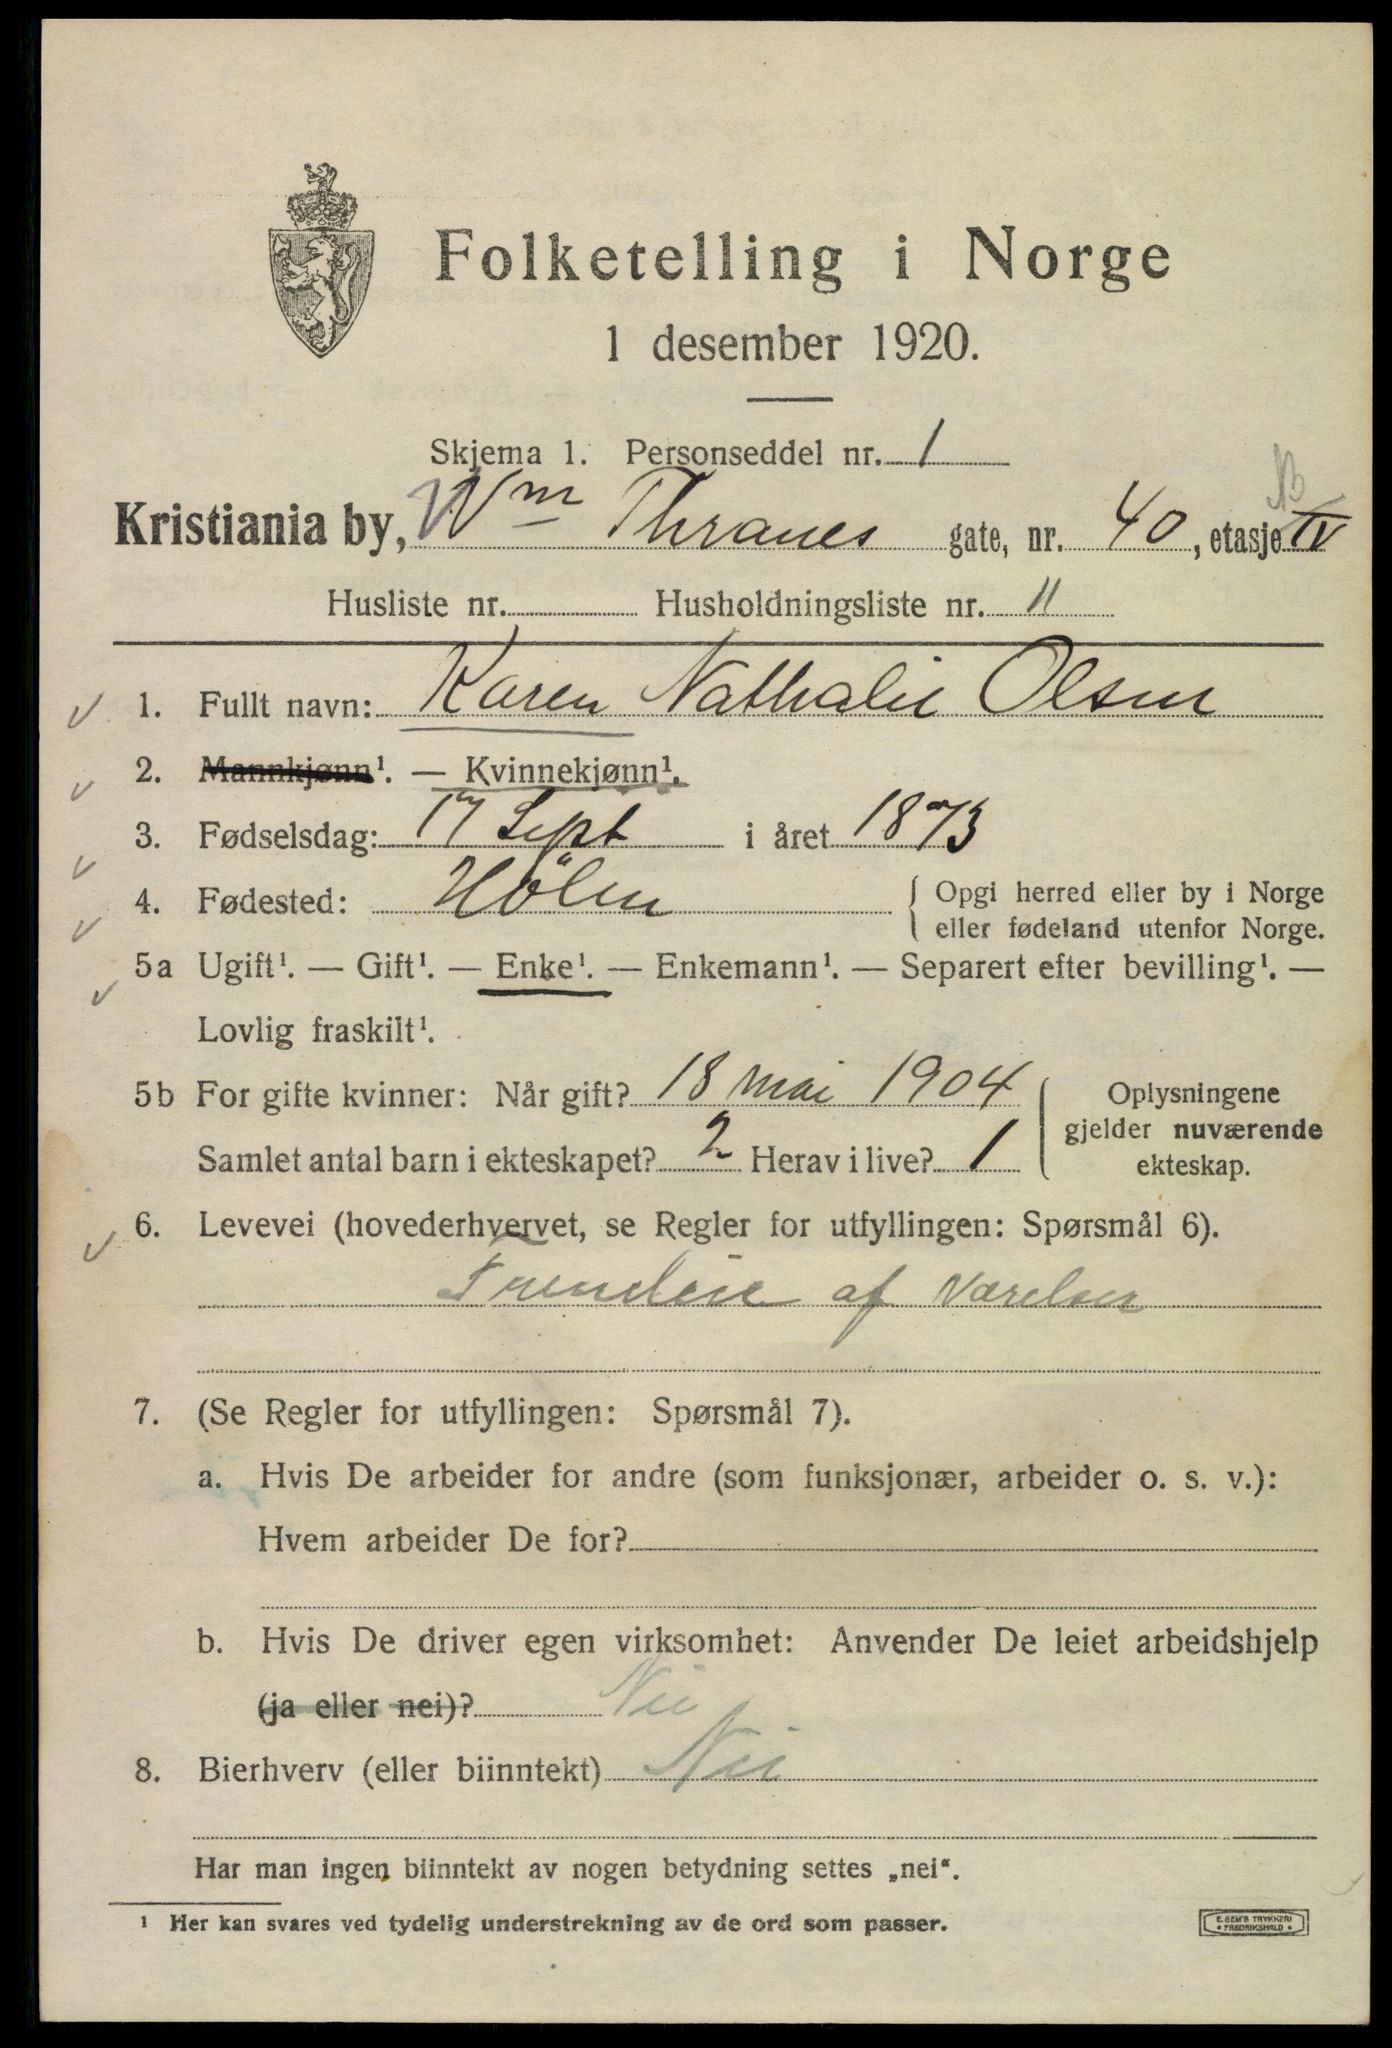 Folketelling i Norge
1 desember 1920.
Skjema 1. Personseddel nr. 1
Kristiania by, Wm Thranes gate, nr. 40, etasje IV
Husliste nr. Husholdningsliste nr. 11
1. Fullt navn: Karen Nathalie Olsen
2. Mannkjønn¹. — Kvinnekjønn¹.
3. Fødselsdag: 17 Sept i året 1873
4. Fødested: Hölen { Opgi herred eller by i Norge
eller fødeland utenfor Norge.
5a Ugift¹. — Gift¹. — Enke¹. — Enkemann¹. — Separert efter bevilling¹. —
Lovlig fraskilt¹.
5b For gifte kvinner: Når gift? 18 mai 1904 { Oplysningene
gjelder nuværende
Samlet antal barn i ekteskapet? 2 Herav i live? 1
ekteskap.
6. Levevei (hovederhvervet, se Regler for utfyllingen: Spørsmål 6).
af Værelser
7. (Se Regler for utfyllingen: Spørsmål 7).
a. Hvis De arbeider for andre (som funksjonær, arbeider o. s. v.):
Hvem arbeider De for?
b. Hvis De driver egen virksomhet: Anvender De leiet arbeidshjelp
(ja eller nei)? Nei
8. Bierhverv (eller biinntekt) Nei
Har man ingen biinntekt av nogen betydning settes „nei“.
¹ Her kan svares ved tydelig understrekning av de ord som passer.
E. SEM'S TRYKKERI
• FREDRIKSHALD •